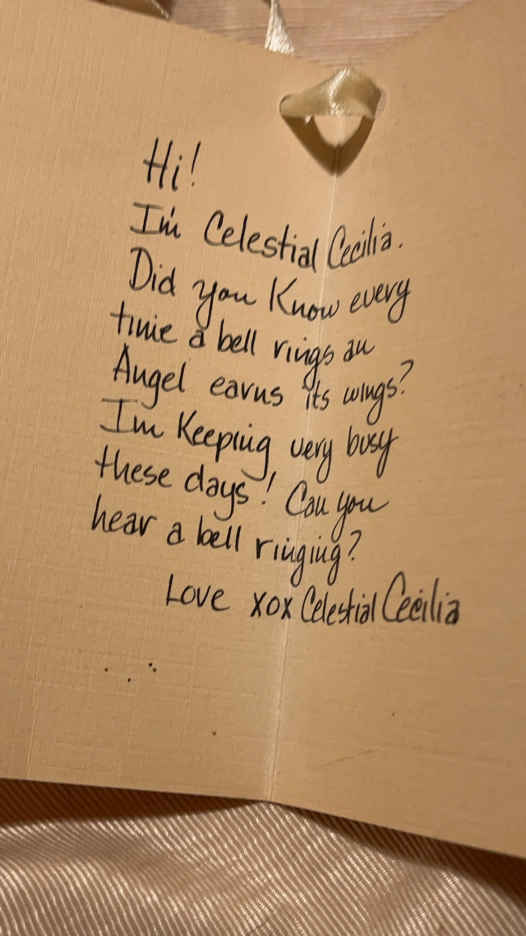 Hi!
I'm Celestial Cecilia.
Did you Know every
time a bell rings an
Angel earns its wings?
I'm Keeping very busy
these days! Can you
hear a bell ringing?
Love xox Celestial Cecilia